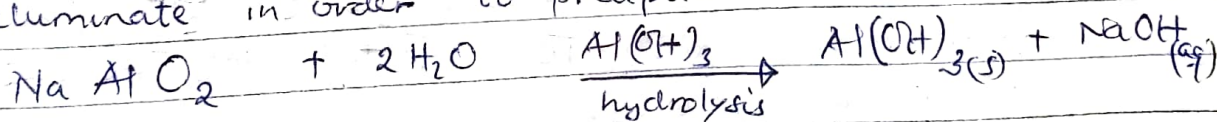 luminate in order to
NaAlO₂ + 2H₂O Al(OH)₃ → hydrolysis Al(OH)₃(s) + NaOH (aq)